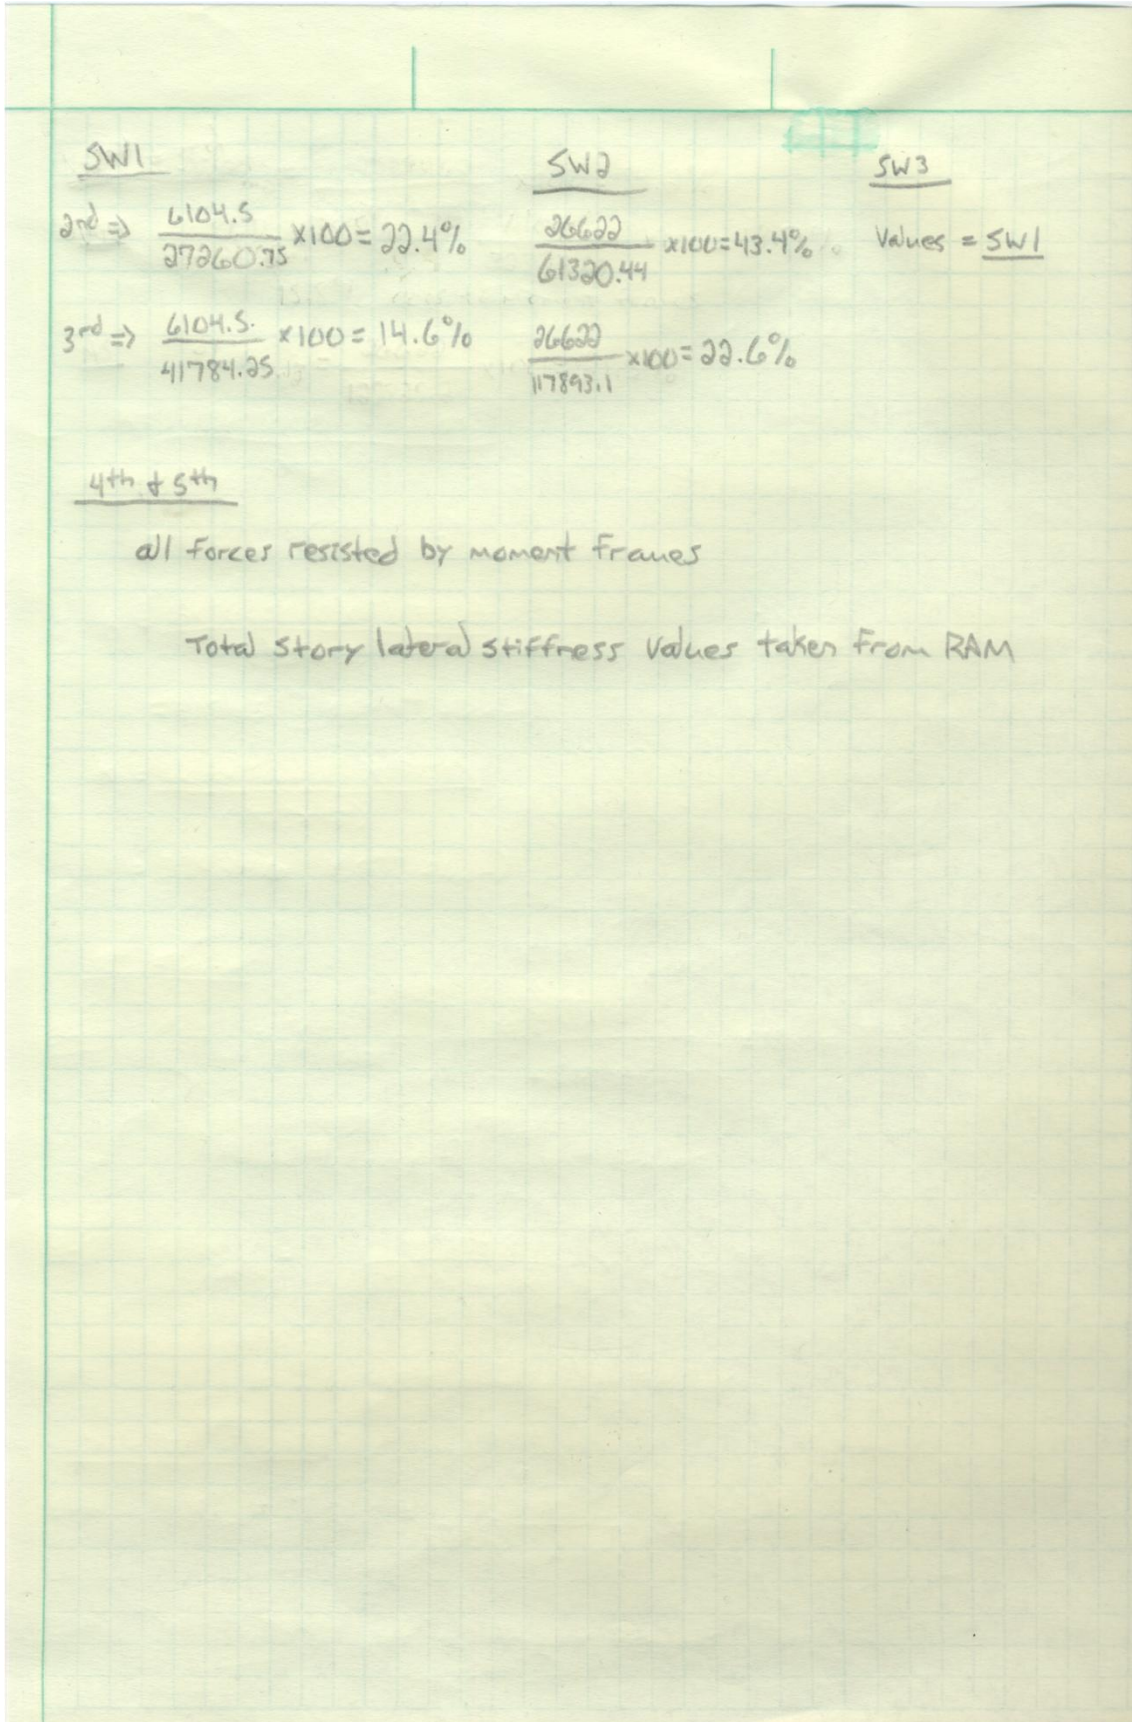 SW1
2nd => 6104.5 / 27260.75 x100 = 22.4%
3rd => 6104.5. / 41784.25 x100 = 14.6%
SW2
26622 / 61320.44 x100 = 43.4%
26622 / 117893.1 x100 = 22.6%
SW3
Values = SW1
4th & 5th
all forces resisted by moment frames
Total story lateral stiffness values taken from RAM